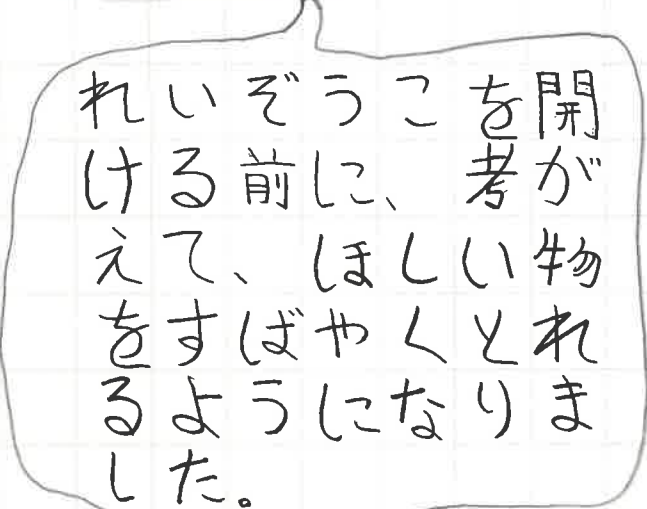 れいぞうこを開
ける前に、考が
えて、ほしい物
をすばやくとれ
るようになりま
した。